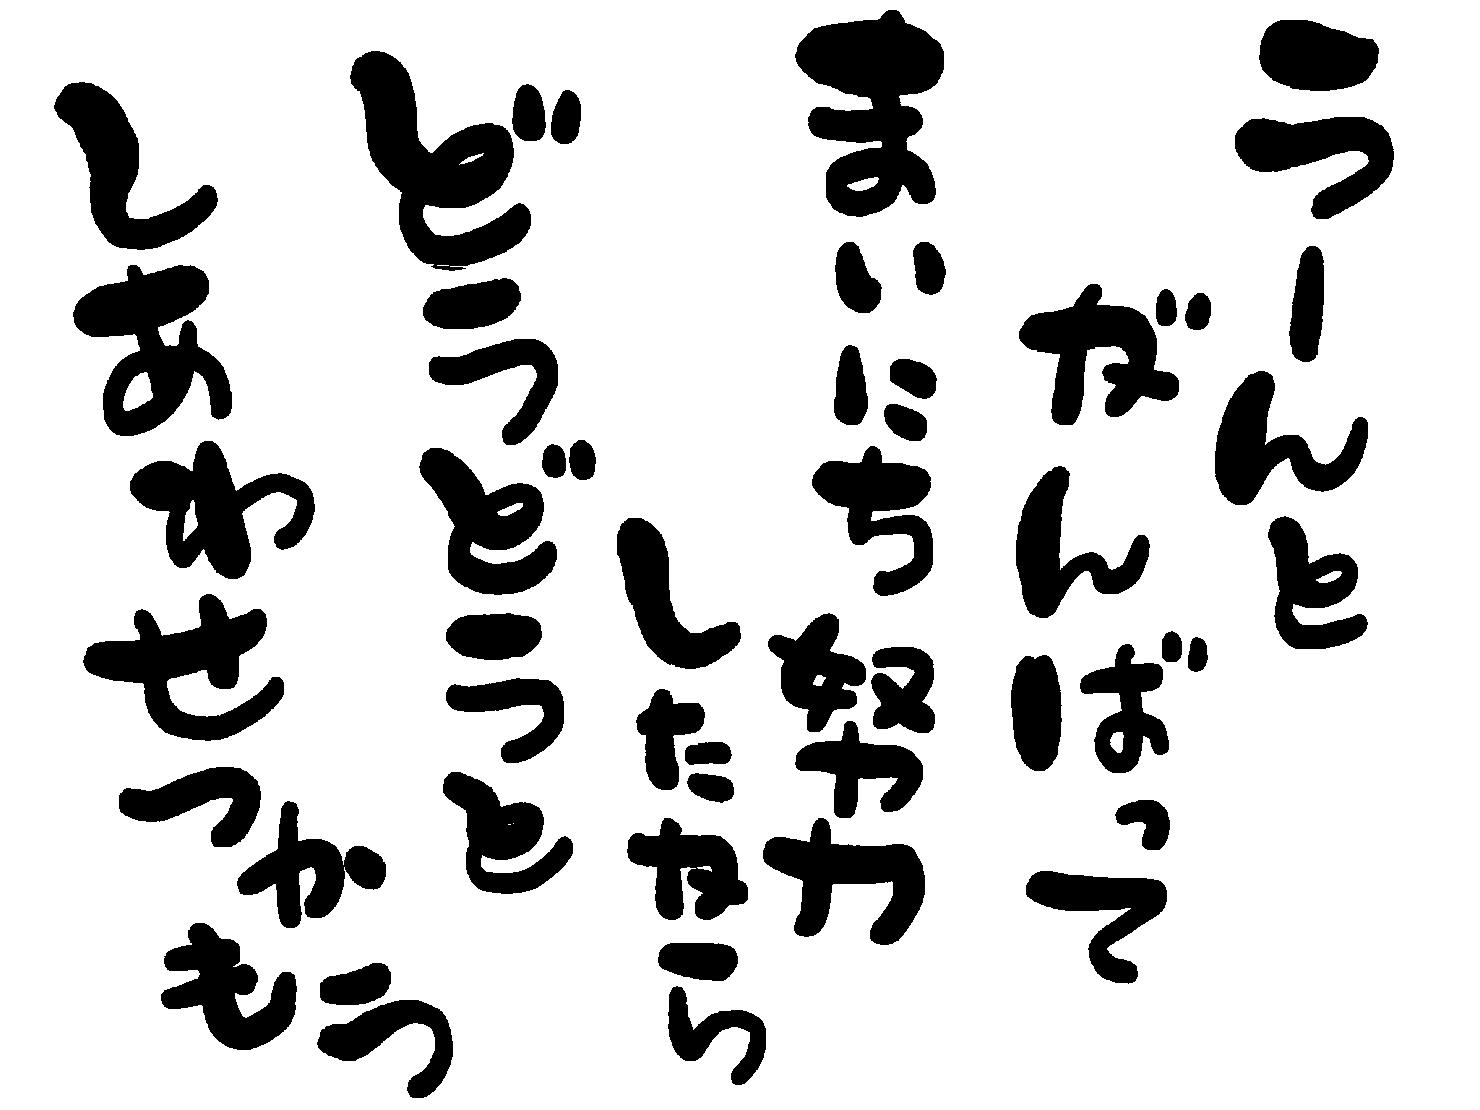 うーんと
がんばって
まいにち努力
したなら
どうどうと
しあわせつかもう